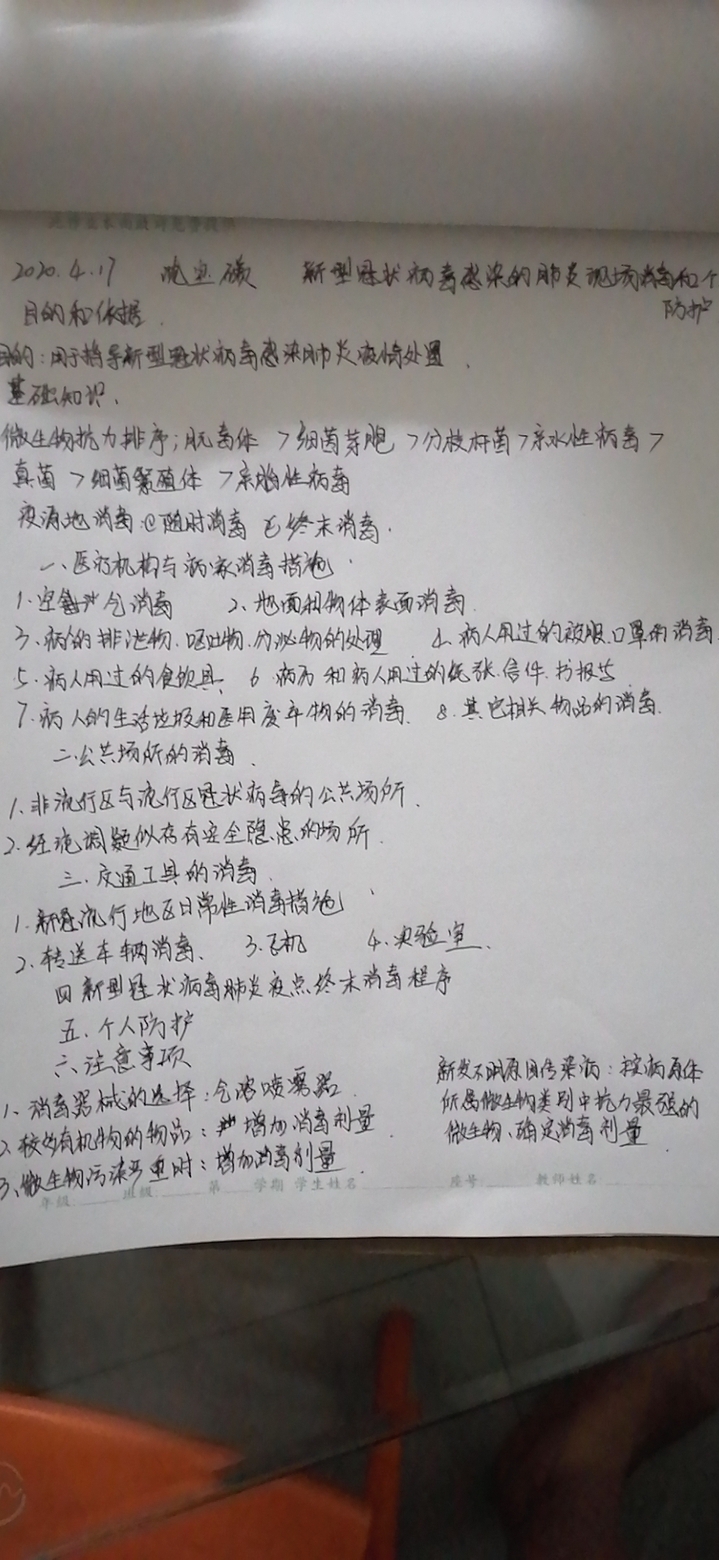 2020.4.17 新型冠状病毒感染的肺炎现场消毒和个
防护
目的和依据.
目的:用于指导新型冠状病毒感染肺炎疫情处置.
基础知识、
微生物抗力排序;朊毒体 >细菌芽胞 >分枝杆菌>亲水性病毒>
真菌 >细菌繁殖体 >亲脂性病毒
疫源地消毒:@随时消毒 ②终末消毒.
一、医疗机构与病家消毒措施.
1.空气 消毒 2、地面和物体表面消毒.
3、病的排泄物.呕吐物.分泌物的处理 4、病人用过的被服.口罩的消毒
5.病人用过的食饮具、 6.病历和病人用过的纸张.信件.书报
7.病人的生活垃圾和医用废弃物的消毒. 8.其它相关物品的消毒.
二.公共场所的消毒、
1.非流行区与流行区冠状病毒的公共场所.
2.经流调疑似存有安全隐患的场所.
三.交通工具的消毒.
1.新冠流行地区日常性消毒措施
2.转送车辆消毒、 3.飞机 4.实验室、
四 新型冠状病毒肺炎疫点终末消毒程序
五.个人防护
六、注意事项
1、消毒器械的选择: 喷雾器.
2.较多有机物的物品: 增加消毒剂量.
3、微生物污染严重时:增加消毒剂量
新发不明原因传染病:按病原体
所属微生物类别中抗力最强的
微生物、确定消毒剂量.
年级 班级 第 学期 学生姓名 座号 教师姓名